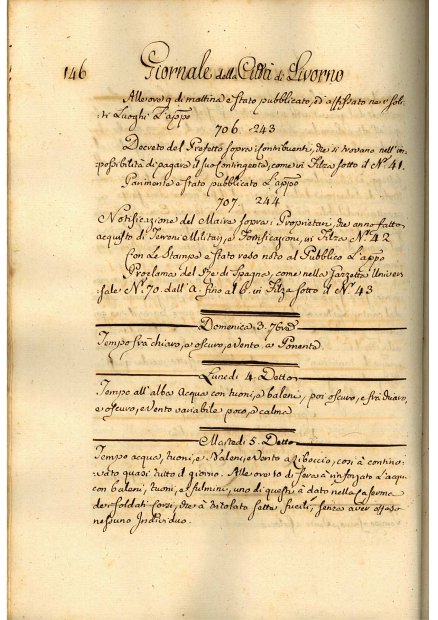 146 Giornale della Città di Livorno
Alle ore 9 di mattina è stato pubblicato, ed affissato ne i soli-
ti Luoghi L'appo
706. 243
Decreto del Prefetto sopra i Contribuenti, che si trovano nell'im-
possibilità di pagare il suo Contingente, come in Filza sotto il N.° 41.
Parimente è stato pubblicato L'appo
707. 244
Notificazione del Maire sopra i Proprietari, che anno fatto
acquisto di Terreni Militari, e Fortificazioni, in Filza N.° 42
Con Le Stampe è stato reso noto al Pubblico L'appo
Proclama del Rè di Spagna, come nella Gazzetta Univer-
sale N.° 70. dall' A fino al 6. in Filza sotto il N.° 43
Domenica 3.
Tempo frà chiaro, e oscuro, e vento a Ponente.
Lunedì 4. Detto
Tempo all'alba acqua con tuoni, e baleni, poi oscuro, e frà chiaro,
e oscuro, e vento variabile poco, e calma
Martedì 5. Detto
Tempo acqua, tuoni, e Baleni, e Vento a Libeccio, con à contino-
vato quasi tutto il giorno. Alle ore 10 di sera à rinforzato l'acqua
con baleni, tuoni, e fulmini, uno di questi à dato nella Caserma
de soldati Corsi, che à disolato sette fucili, senza aver offeso
nessuno Individuo.